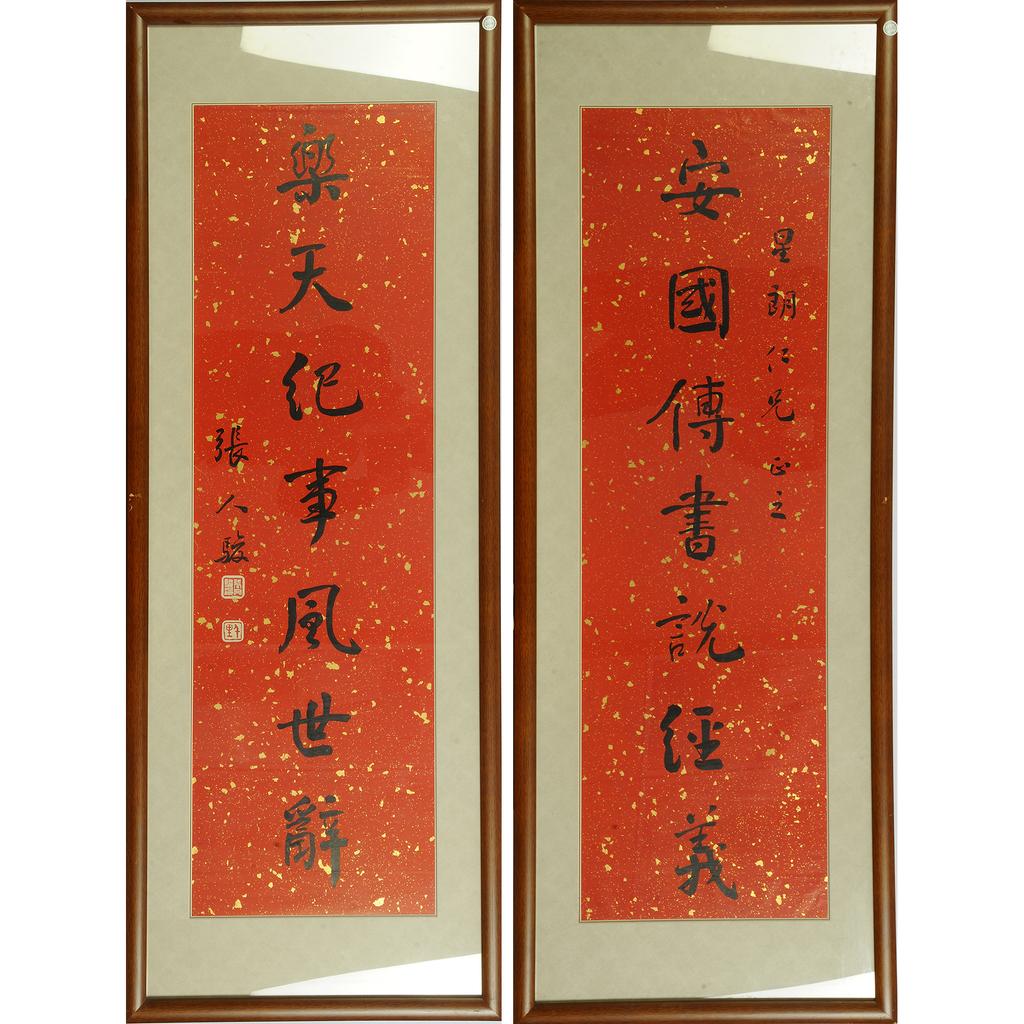 安國傳書說經義
星朗仁兄正之
樂天紀事風世辭
張人駿